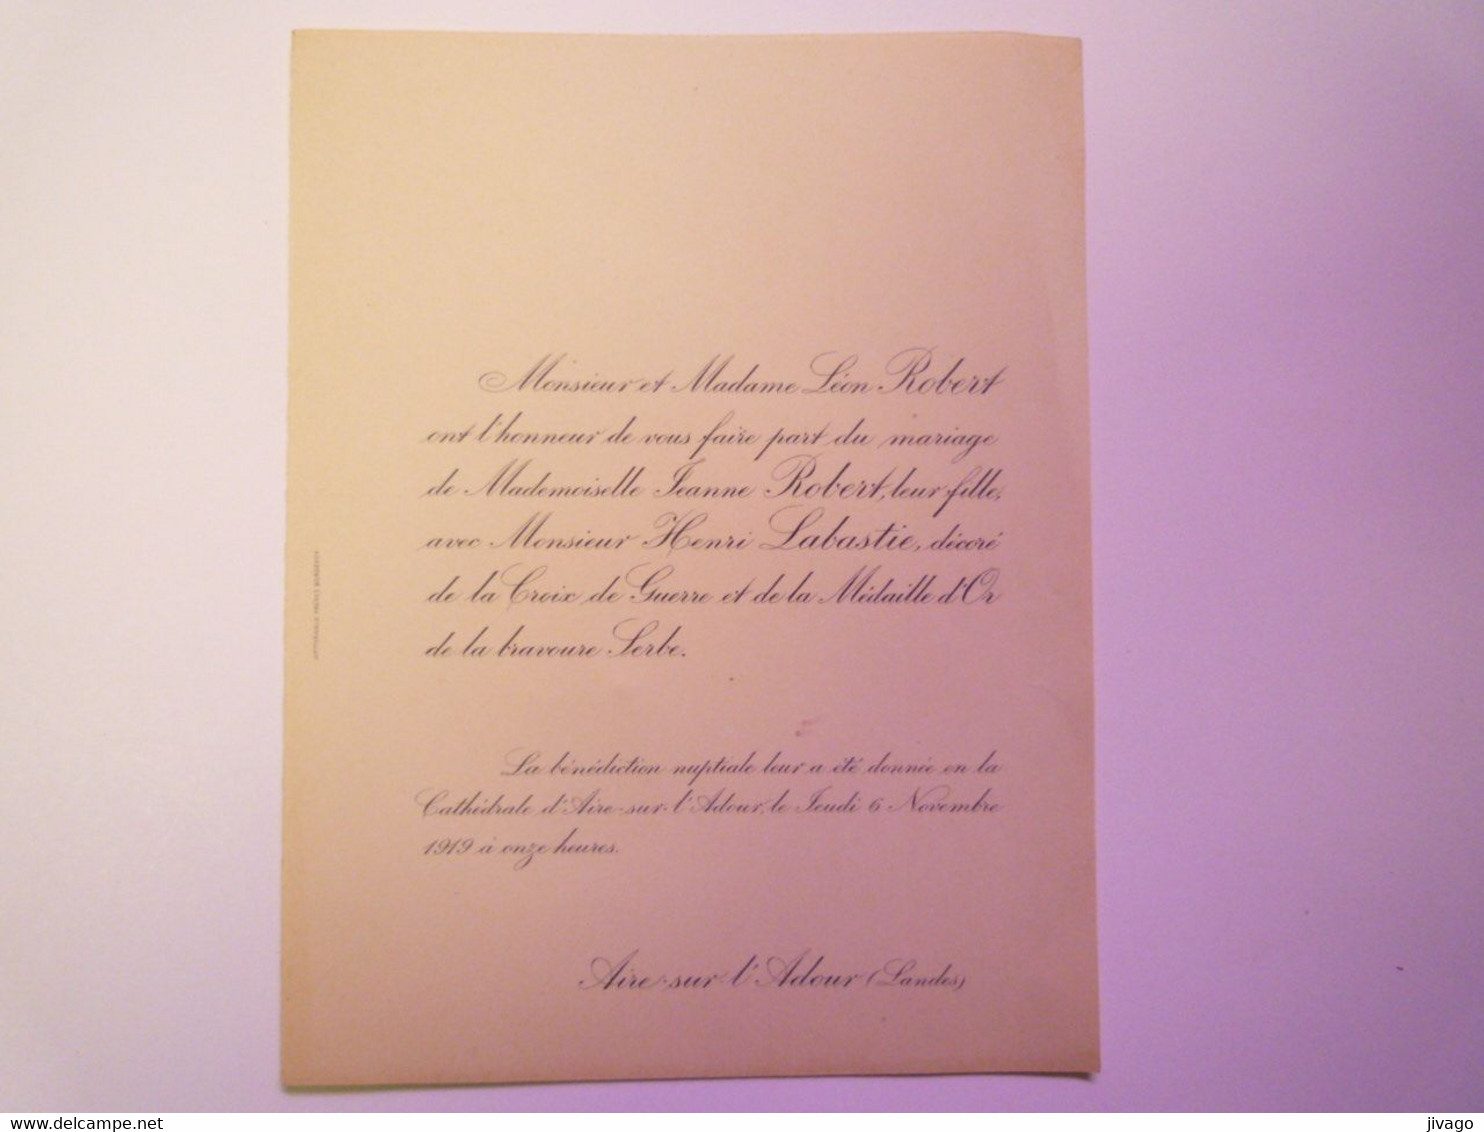 Monsieur et Madame Léon Robert
ont l'honneur de vous faire part du mariage
de Mademoiselle Jeanne Robert, leur fille,
avec Monsieur Henri Labastie, décoré
de la Croix de Guerre et de la Médaille d'Or
de la bravoure Serbe.
La bénédiction nuptiale leur a été donnée en la
Cathédrale d'Aire-sur-l'Adour, le Jeudi 6 Novembre
1919 à onze heures.
Aire-sur-l'Adour (Landes)
www.delcampe.net
jivago